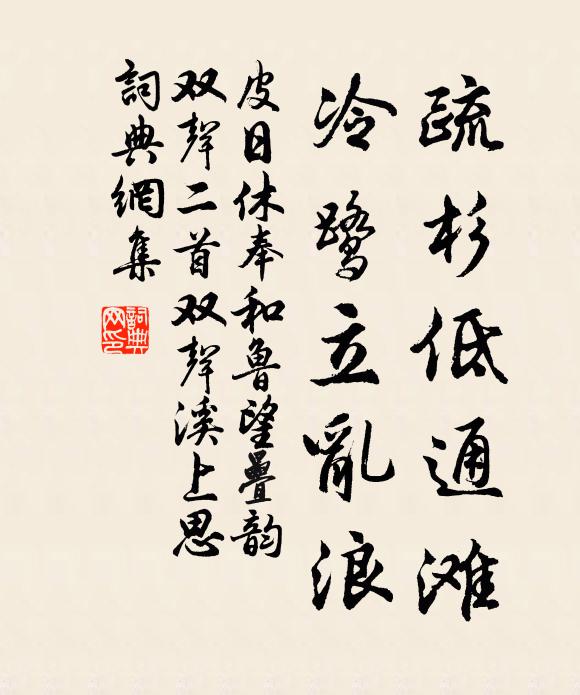 疏杉低通滩
冷鹭立亂浪
皮日休奉和魯望疊韵
双聲二首双聲溪上思
詞典網集
詞典网印